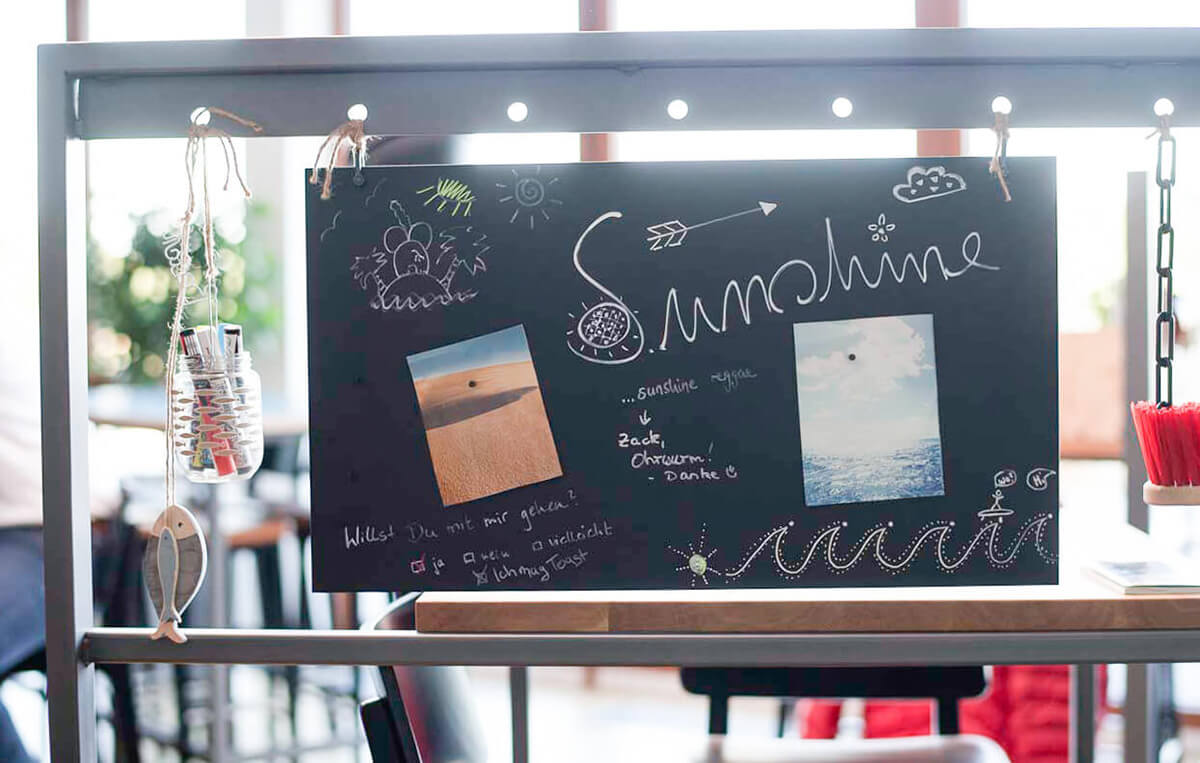 Sunshine
...sunshine reggae
Zack,
Ohrwurm!
- Danke
Willst Du mit mir gehen?
ja nein vielleicht
Ich mag Toast
Hi